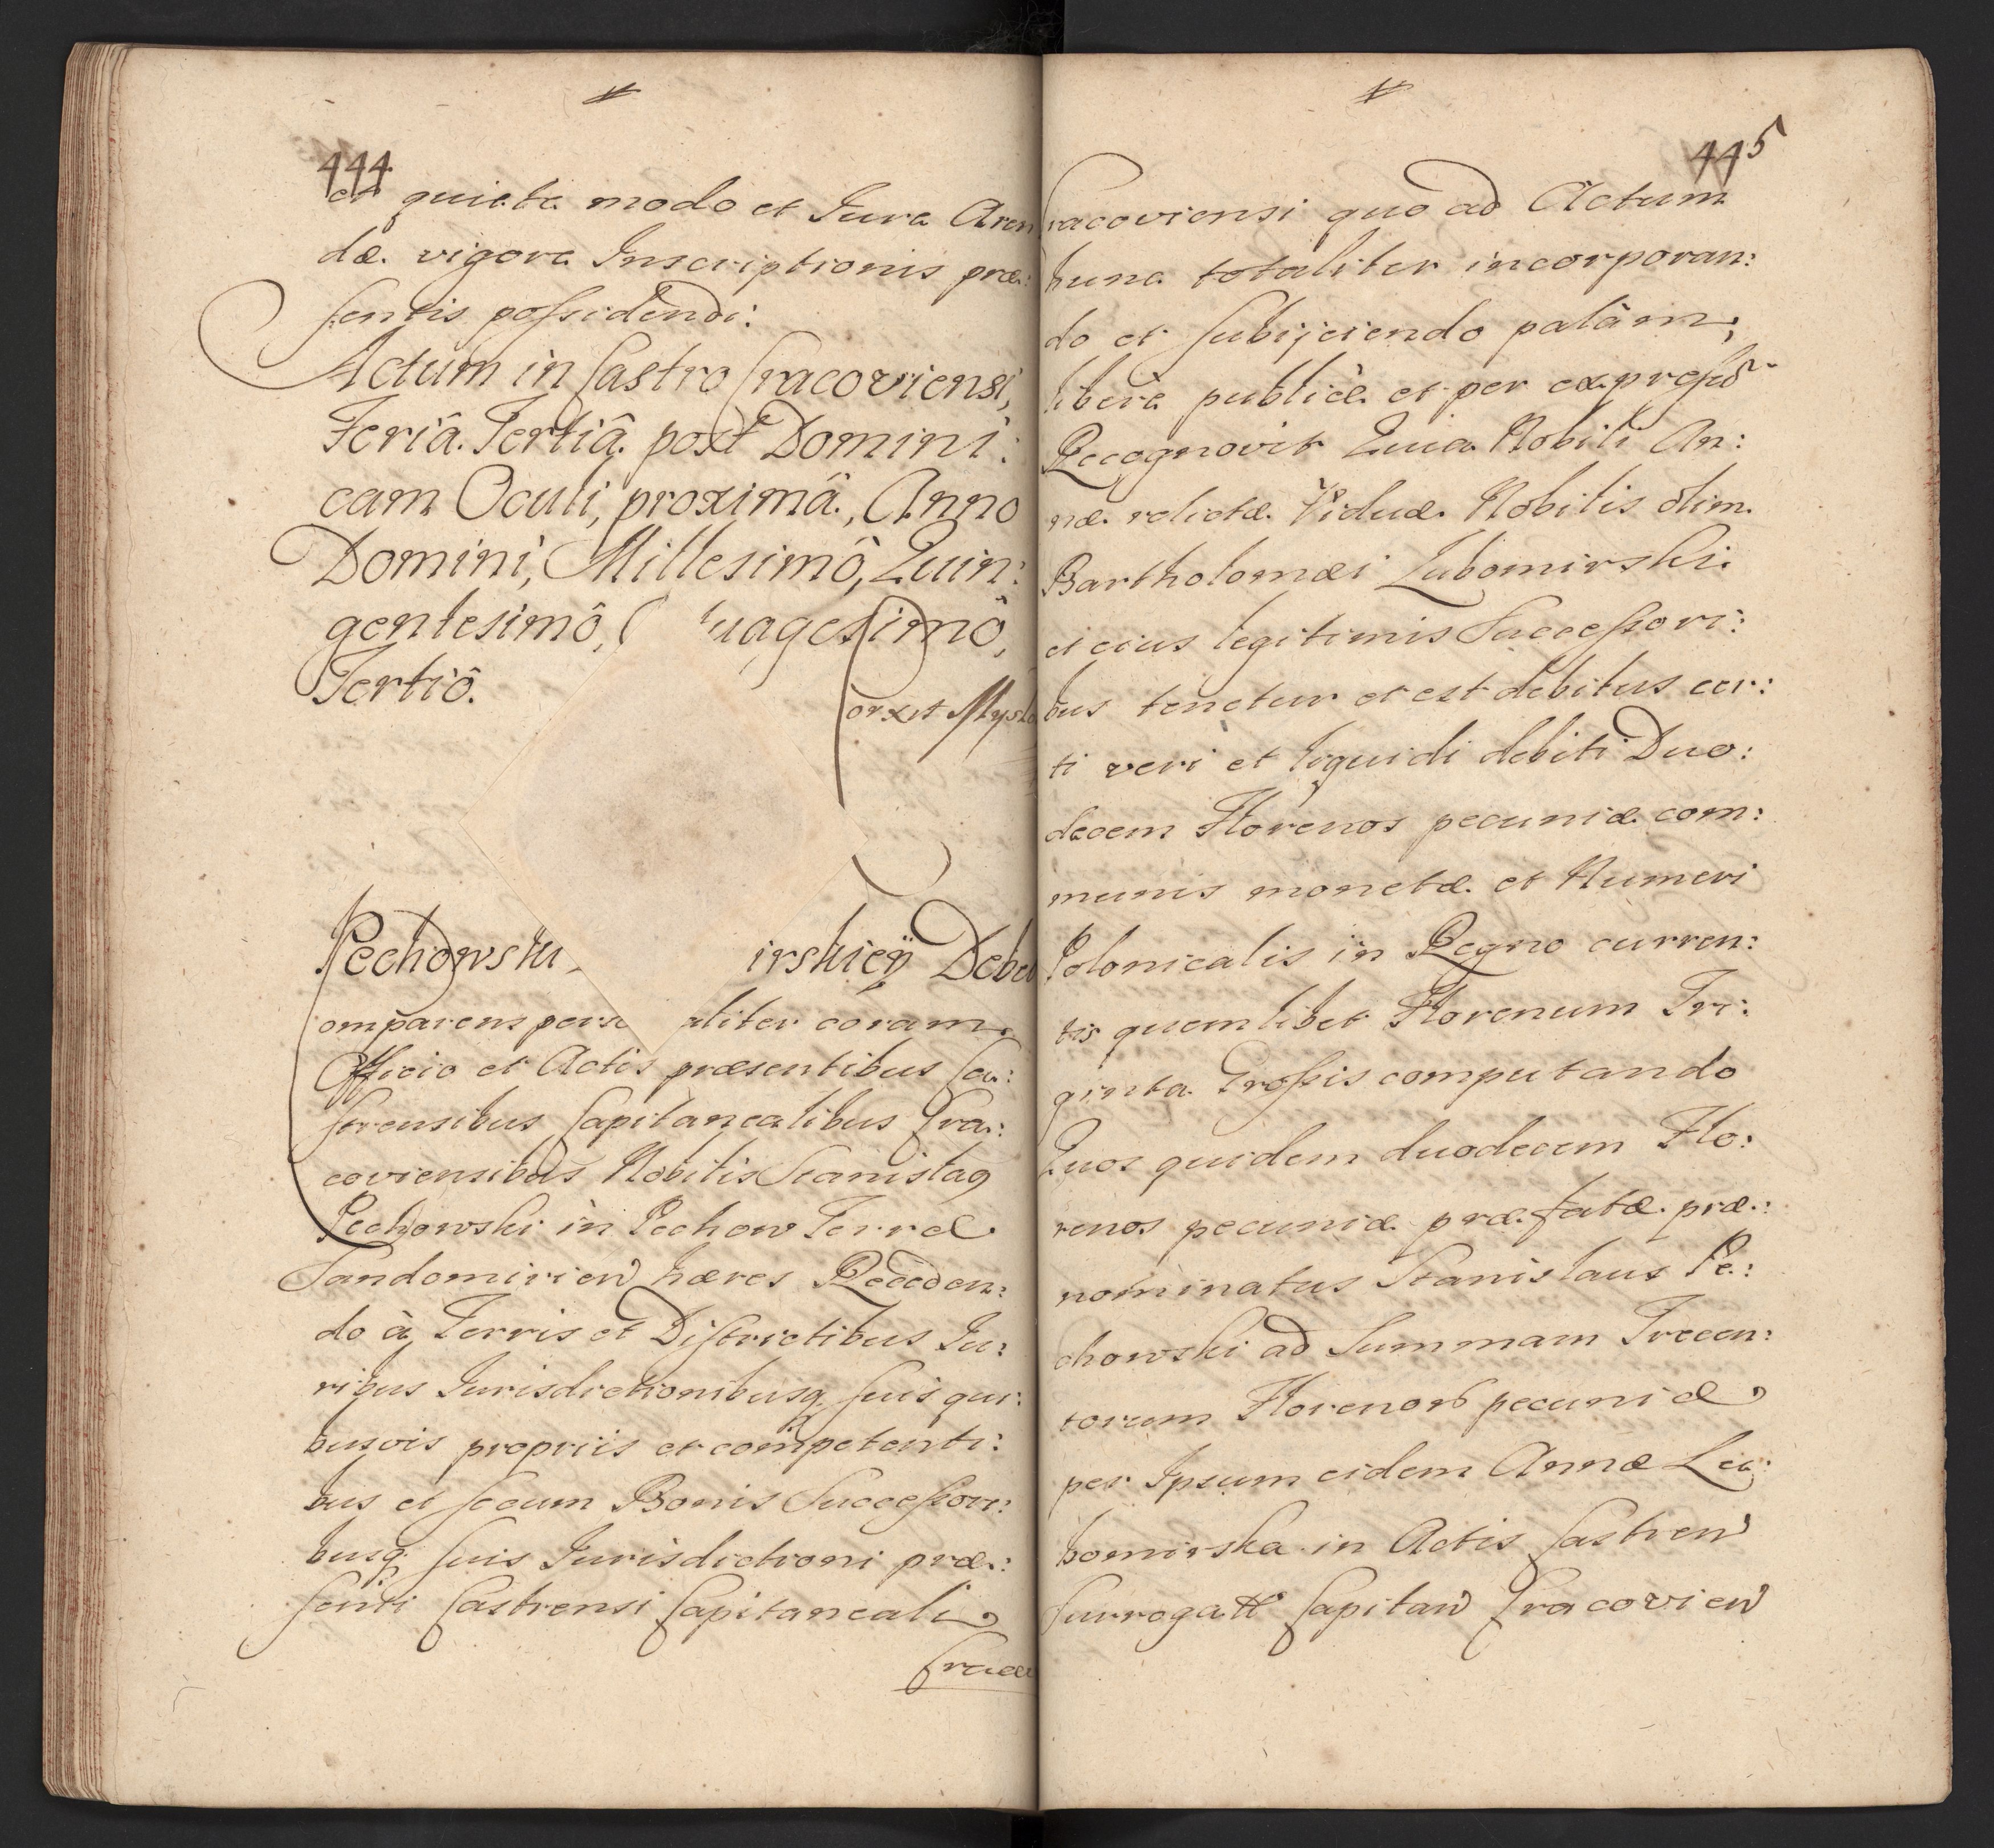 444.
et quiete modo et Jure Aren
dæ vigore Inscriptionis præ:
sentis possidendi:
Actum in Castro Cracoviensi,
Feriâ Tertiâ post Domini:
cam Oculi, proximâ, Anno
Domini, Millesimô, Quin:
gentesimô, uagesimô,
Tertiô.
Pechowski irskiey Debet
omparens perso aliter coram
Officio et Actis præsentibus Ca:
strensibus Capitanealibus Cra:
coviensibus Nobilis Stanislaq
Pechowski in Pechow Terræ
Sandomirien hæres Receden:
do à Terris et Districtibus Ju:
ribus Jurisdictionibusq suis qui:
busvis propriis et competenti:
bus et secum Bonis Successori:
busq suis Jurisdictioni præ:
senti Castrensi Capitaneali
Craco
445
racoviensi quo ad Actum
hunc totaliter incorporan:
do et subijciendo palàm,
liberè publicè et per expressũ
Recognovit Quia Nobili An:
næ relictæ Viduæ Nobilis olim
Bartholomæi Lubomirski
et eius legitimis Successori:
bus tenetur et est debitus cer:
ti veri et liquidi debiti Duo:
decem Florenos pecuniæ com:
munis monetæ et Numeri
Polonicalis in Regno curren:
tis quemlibet Florenum Tri:
ginta Grossis computando
Quos quidem duodecem Flo:
renos pecuniæ præfatæ præ:
nominatus Stanislaus Pe:
chowski ad Summam Trecen:
torum Florenorũ pecuniæ
per Ipsum eidem Annæ Lu:
bomirska in Actis Castren
Surrogatt Capitan Cracovien